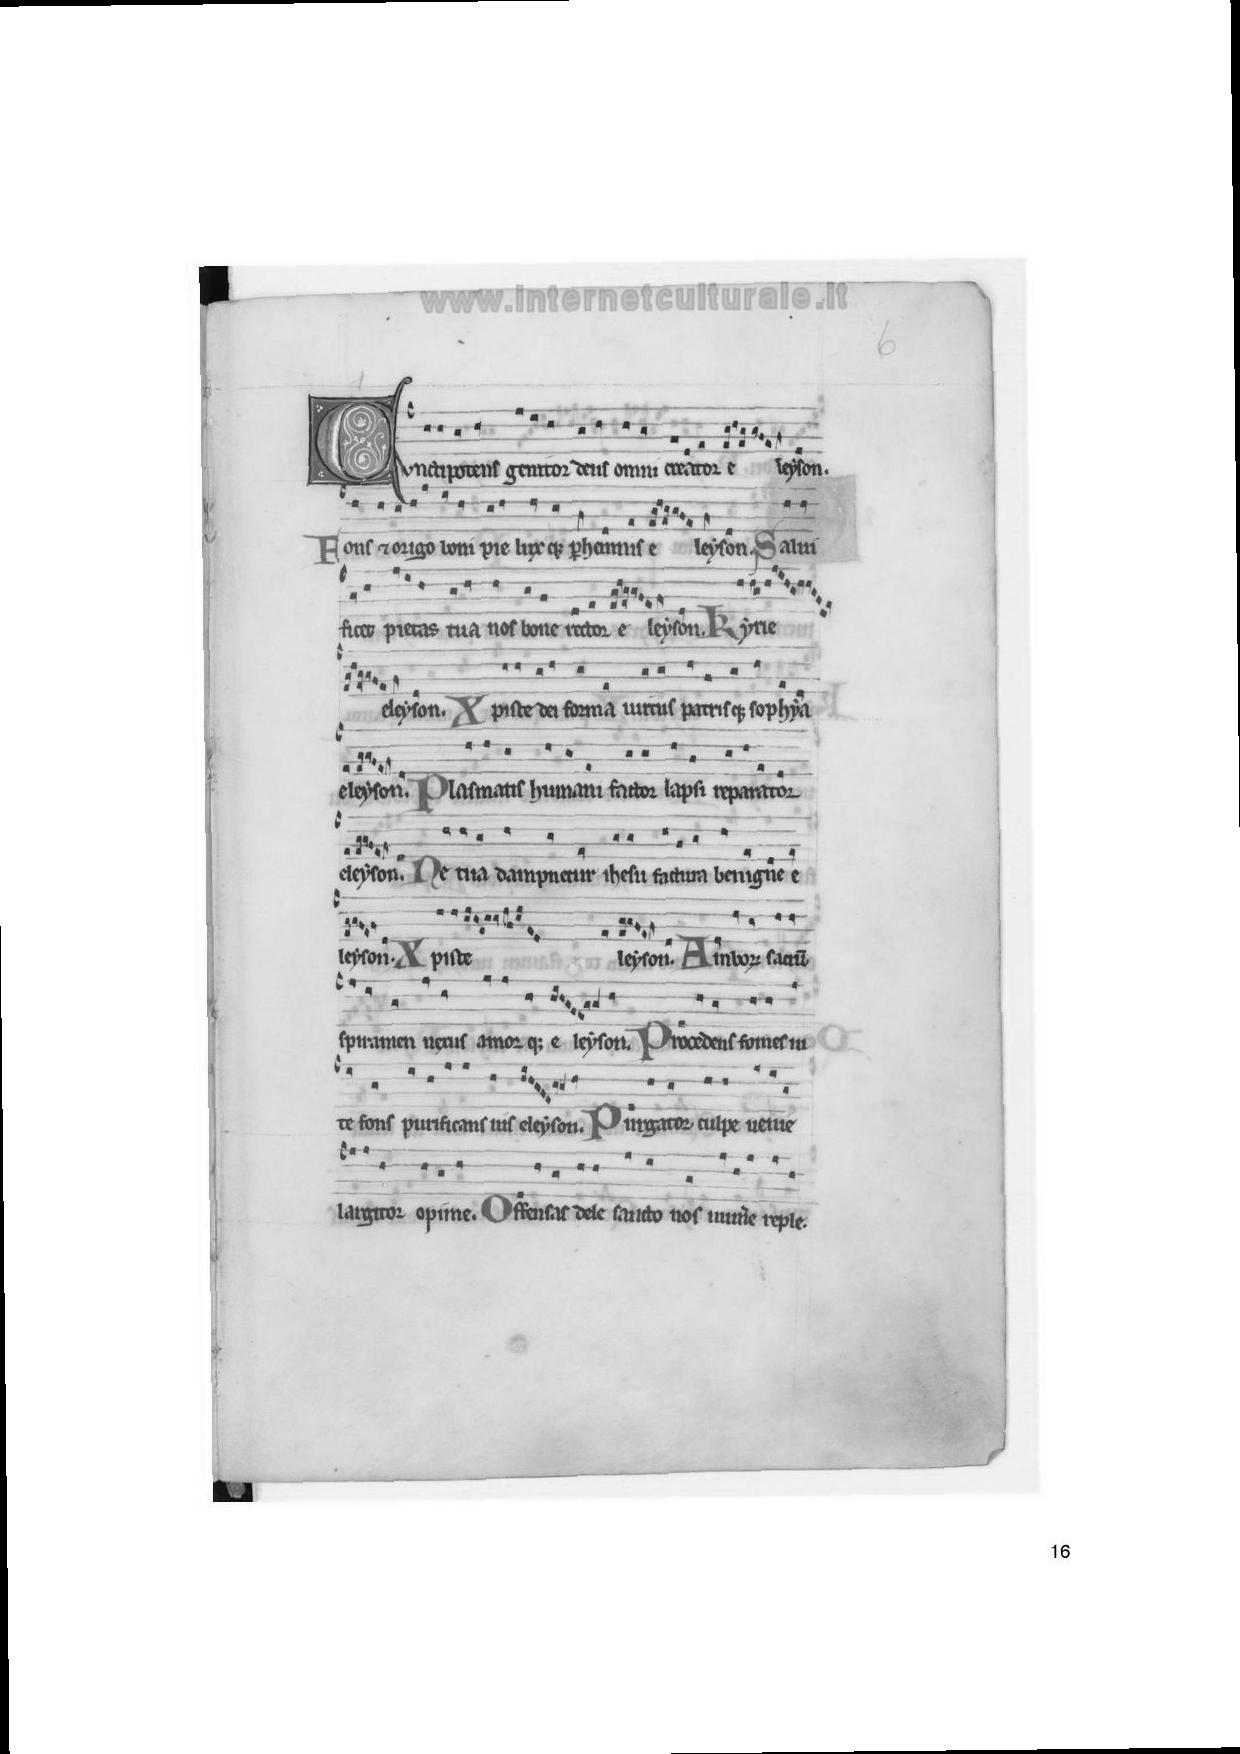 www.internetculturale.it
6
Cunctipotens genitor deus omni creator e leyson.
Fons ⁊ origo boni pie lux qꝫ phennis e leyson. Salui
ficet pietas tua nos bone rector e leyson. Kyrie
eleyson. Xpiste dei forma uirtus patris qꝫ sophya
eleyson. Plasmatis humani factor lapsi reparator
eleyson. Ne tua dampnetur ihesu factura benigne e
leyson. Xpiste leyson. Amborꝝ sacrū
spiramen nexus amor qꝫ e leyson. Procedens fomes in
te fons purificans uis eleyson. Purgator culpe uenie
largitor opime. Offensas dele sancto nos munere reple.
16